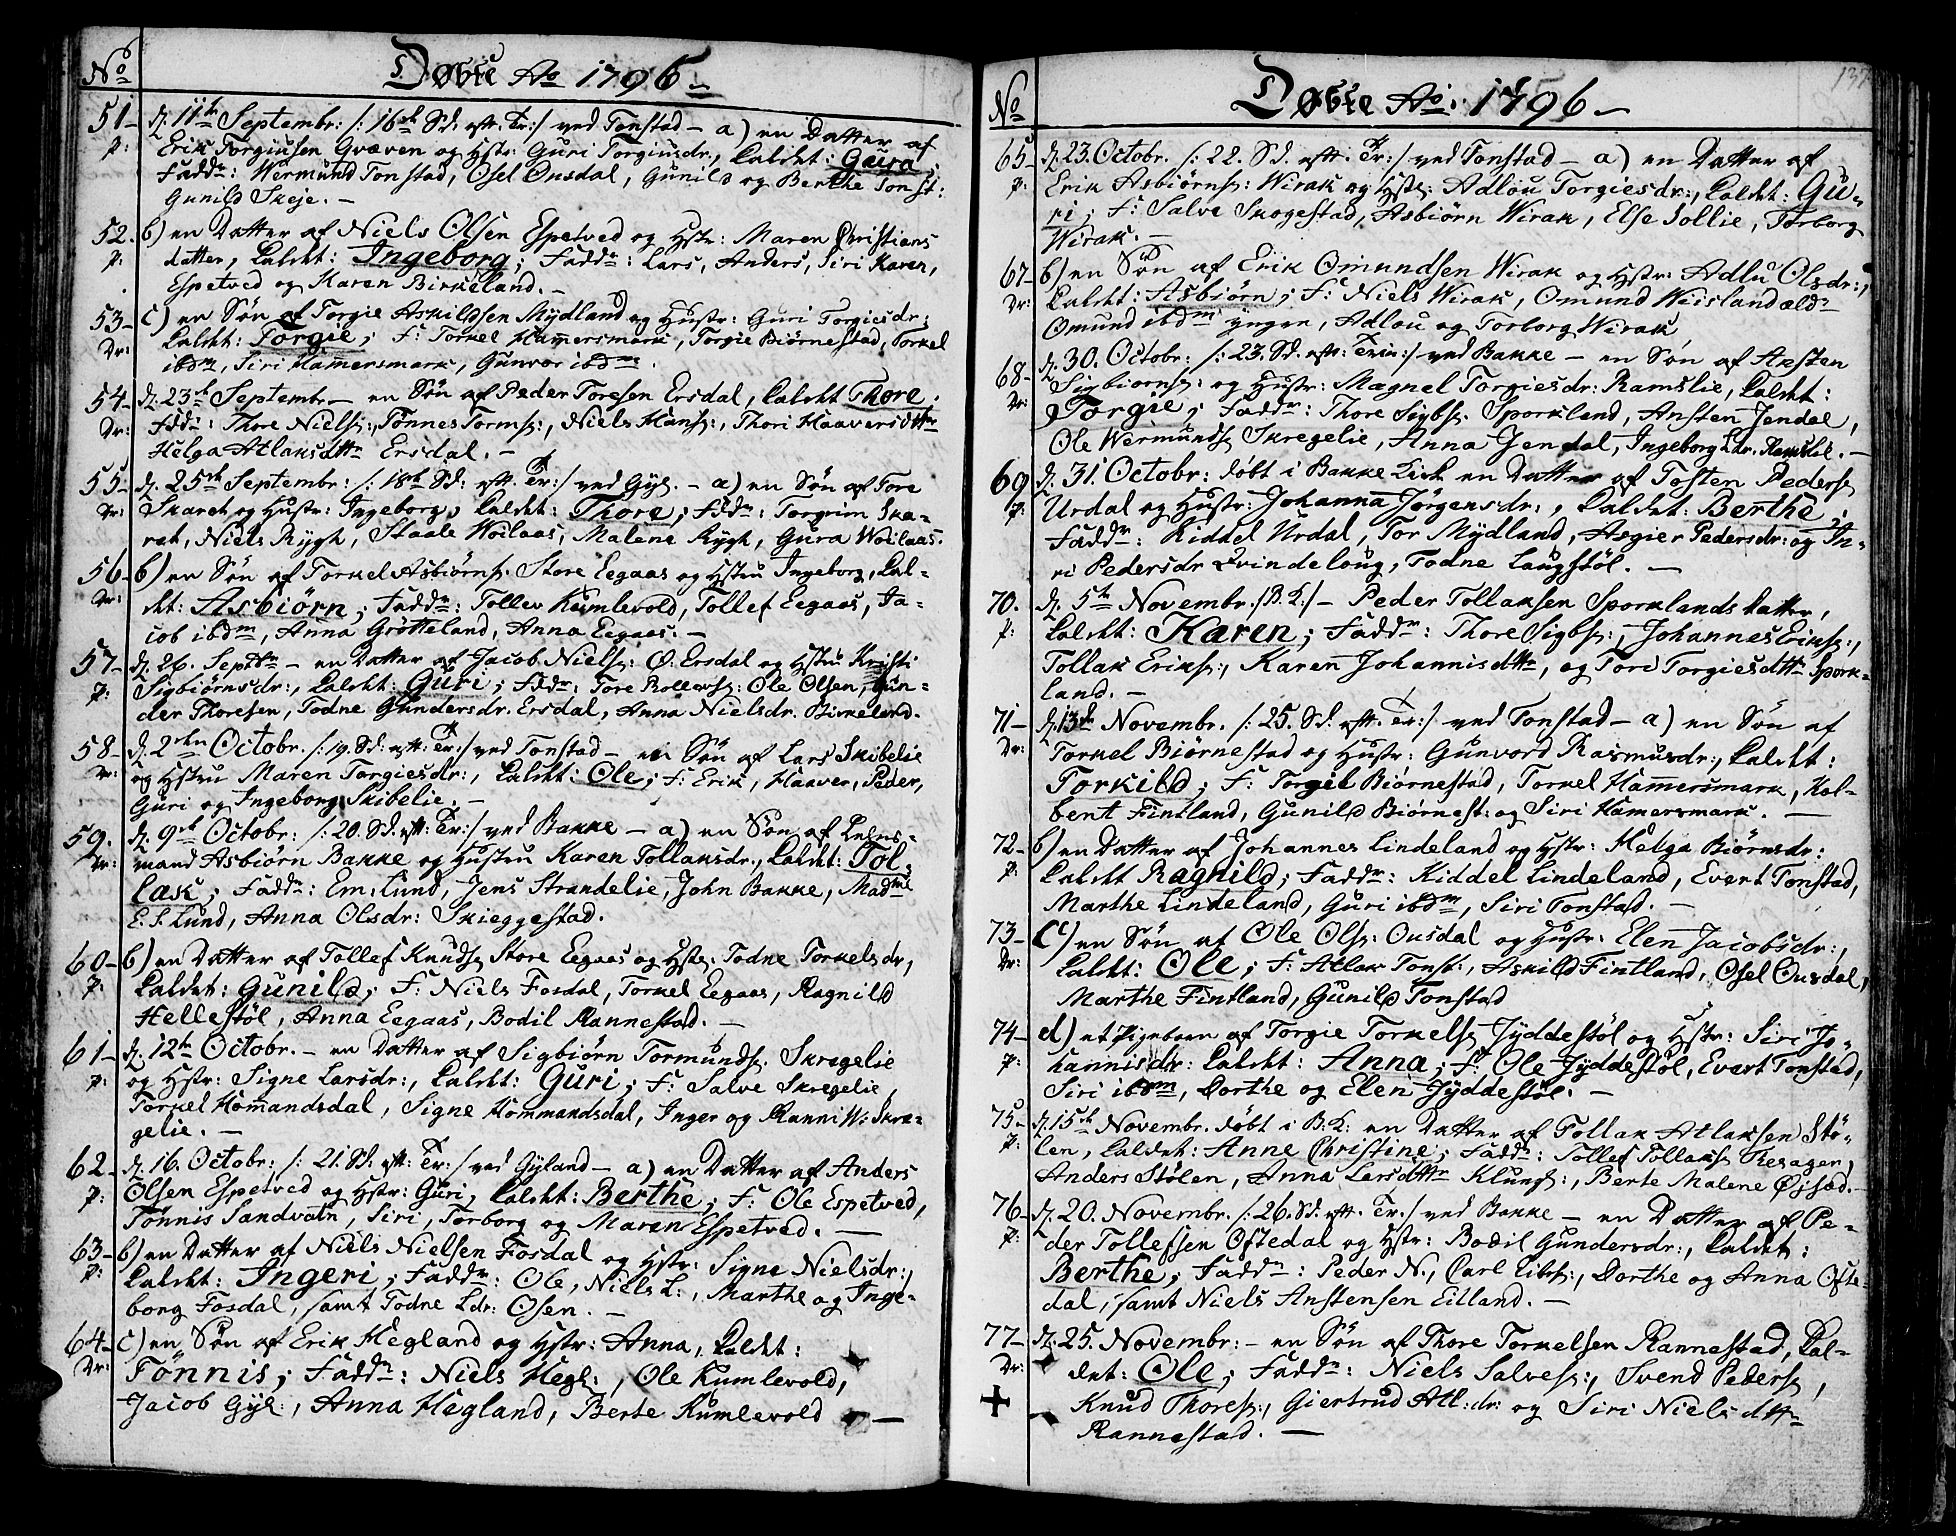 No
Døbte Ao 1796
51 d. 11te Septembr: /: 16de Sd: eft. Tr:/ ved Tonstad – a) en Datter af
p: Erik Torgiusen Gvæven og Hstr: Guri Torgiusdr., kaldet: Gura;
Fadd: Wermund Tonstad, Osel Ousdal, Gunild og Berthe Tonst:
Gunild Skeje. –
52. b) en Datter af Niels Olsen Espetved og Hstr: Maren Christians
p: datter, kaldet: Ingeborg; Fadd: Lars, Anders, Siri Karen,
Espetved og Karen Birkeland. –
53 – c) en Søn af Torgie Askildsen Mydland og Hustr: Guri Torgiesdr;
Dr: kaldet: Torgie; F: Torkel Hamersmark, Torgie Biørnestad, Torkel
ibdm, Siri Hamersmark, Gunvor ibdm.
54 – d. 23de Septembr – en Søn af Peder Toresen Ersdal, kaldet Thore.
Dr: Fadd: Thore Nielsr:, Tønnes Tormsr:, Niels Hansr:, Thori Haaversdttr
Helga Atlaksdttr Ersdal. –
55 – d. 25de Septembr: /: 18de Sd: eft. Tr:/ ved Gyl. – a) en Søn af Tore
Dr: Skaret og Hustr: Ingeborg, kaldet: Thore; Fadd: Torgrim Ska-
ret, Niels Rygh, Staale Woilaas, Malene Rygh, Gura Woilaas.
56 – b) en Søn af Torkel Asbiørns. Store Eegaas og Hstru Ingeborg, kal-
Dr: det: Asbiørn; Fadd: Tollev Kumlevold, Tollef Eegaas, Ja-
cob ibdm, Anna Grøtteland, Anna Eegaas. –
57 – d. 26. Septbr – en Datter af Jacob Niels: Ø. Ersdal og Hstru Kristi
p: Sigbiørnsdr:, kaldet: Guri; Fadd: Tore Rollevs: Ole Olsen, Gun-
der Thoresen, Todne Gundersdr. Ersdal, Anna Nielsdr. Birkeland.
58 – d. 2den Octobr. /: 19. Sd: eft: Tr:/ ved Tonstad – en Søn af Lars Skibelie
Dr: og Hstru Maren Torgiesdr:, kaldet: Ole; F: Erik, Haaver, Peder,
Guri og Ingeborg Skibelie. –
59. d. 9de Octobr: /: 20. Sd: eft: Tr:/ ved Bakke – a) en Søn af Lens-
Dr: mand Asbiørn Bakke og Hustru Karen Tollaksdr., kaldet: Tol-
lak; Fadd: Em: Lund, Jens Strandelie, John Bakke, Madme
E. S. Lund, Anna Olsdr: Skieggestad.
60 – b) en Datter af Tollef Knuds. Store Eegaas og Hstr. Todne Torkelsdr,
p: kaldet: Gunild; F: Niels Fosdal, Torkel Eegaas, Ragnild
Hellestøl, Anna Eegaas, Bodil Rannestad. –
61 – d. 12te Octobr. – en Datter af Sigbiørn Tormunds. Skregelie
p: og Hstr: Signe Larsdr:, kaldet: Guri; F: Salve Skregelie,
Torkel Homandsdal, Signe Hommandsdal, Inger og Ranni W: Skre-
gelie. –
62 – d. 16. Octobr: /: 21. Sd: eft: Tr:/ ved Gyland – a) en Datter af Anders
p: Olsen Espetved og Hstr: Guri, kaldet: Berthe; F: Ole Espetved,
Tønnis Sandvatn, Siri, Torborg og Maren Espetved. –
63 – b) en Datter af Niels Nielsen Fosdal og Hstr: Signe Nielsdr:,
p: kaldet: Ingeri; Fadd: Ole, Niels L:, Marthe og Inge-
borg Fosdal, samt Todne Ldr: Osen. –
64 – c) en Søn af Erik Hegland og Hstr: Anna, kaldet:
Dr: Tønnis; Fadd: Niels Hegl:, Ole Kumlevold,
Jacob Gyl:, Anna Hegland, Berte Kumlevold –
137
No
Døbte Ao: 1796 –
65 – d. 23. Octobr. /: 22. Sd. eft. Tr:/ ved Tonstad – a) en Datter af
p: Erik Asbiørns: Wirak og Hstr: Adlou Torgiesdr:, kaldet: Gu-
ri; F: Salve Skogestad, Asbiørn Wirak, Else Sollie, Torborg
Wirak. –
67 – b) en Søn af Erik Omundsen Wirak og Hstr: Adlu Olsdr:,
Dr: kaldet: Asbiørn; F: Niels Wirak, Omund Weisland ældr
Omund ibdm yngre, Adlou og Torborg Wirak
68 – d. 30. Octobr: /: 23. Sd. eft: Trin:/ ved Bakke – en Søn af Ansten
Dr: Sigbiørns: og Hustr: Magnel Torgiesdr: Ramslie, kaldet:
Torgie; Fadd: Thore Sigbs. Sporkland, Ansten Jendal,
Ole Wermunds Skregelie, Anna Jendal, Ingeborg Ldr. Ramslie. –
69 d. 31. Octobr: døbt i Bakke Kirk en Datter af Tosten Peders
p: Urdal og Hustr: Johanna Jørgensdr:, kaldet: Berthe;
Fadd: Kiddel Urdal, Tor Mydland, Asgier Pedersdr: og In-
ri Pedersdr Qvindeloug, Todne Laugstøl. –
70. d. 5te Novembr. /B. K./ – Peder Tollaksen Sporklands datter,
p: kaldet: Karen; Fadd: Thore Sigbs:, Johannes Eriks:,
Tollak Eriks:, Karen Johannisdtr, og Tori Torgiesdtr Spork-
land. –
71 – d. 13de Novembr. /: 25. Sd. eft. Tr:/ ved Tonstad – a) en Søn af
Dr: Torkel Biørnestad og Hustr: Gunvord Rasmusdr:, kaldet:
Torkild; F: Torgiel Biørnestad, Torkel Hamersmark, Kol-
bent Fintland, Gunild Biørnest: og Siri Hamersmark. –
72 – b) en Datter af Johannes Lindeland og Hstr: Helga Biørnsdr:
p: kaldet Ragnild; Fadd: Kiddel Lindeland, Evert Tonstad,
Marthe Lindeland, Guri ibdm, Siri Tonstad. –
73 – c) en Søn af Ole Ols: Ousdal og Hustr: Elen Jacobsdr:,
Dr: kaldet: Ole; F: Atlak Tonst:, Askild Fintland, Osel Ousdal,
Marthe Fintland, Gunild Tonstad
74 – d) et Pigebarn af Torgie Torkels. Jyddestøl og Hstr: Siri Jo-
p: hannisdr: kaldet: Anna; F: Ole Jyddestøl, Evert Tonstad,
Siri ibdm, Dorthe og Elen Jyddestøl. –
75 – d. 15te Novembr. døbt i B.K: en Datter af Tollak Atlaksen Stø-
p: len, kaldet: Anne Christine; Fadd: Tollef Tollaks. Tresager,
Anders Stølen, Anna Larsdttr Klungl:, Berte Malene Øisæd. –
76 – d. 20. Novembr. /: 26. Sd. eft. Tr:/ ved Bakke – en Datter af Pe-
p: der Tollefsen Oftedal og Hstr: Bodil Gundersdr:, kaldet:
Berthe; Fadd: Peder N., Carl Eibs:, Dorthe og Anna Ofte-
dal, samt Niels Anstensen Eilland. –
77 – d. 25. Novembr: – en Søn af Thore Torkelsen Rannestad, kal-
Dr: det: Ole; Fadd: Niels Salves:, Svend Peders,
Knud Thores:, Giertrud Atl:dr: og Siri Nielsdtt
Rannestad. –